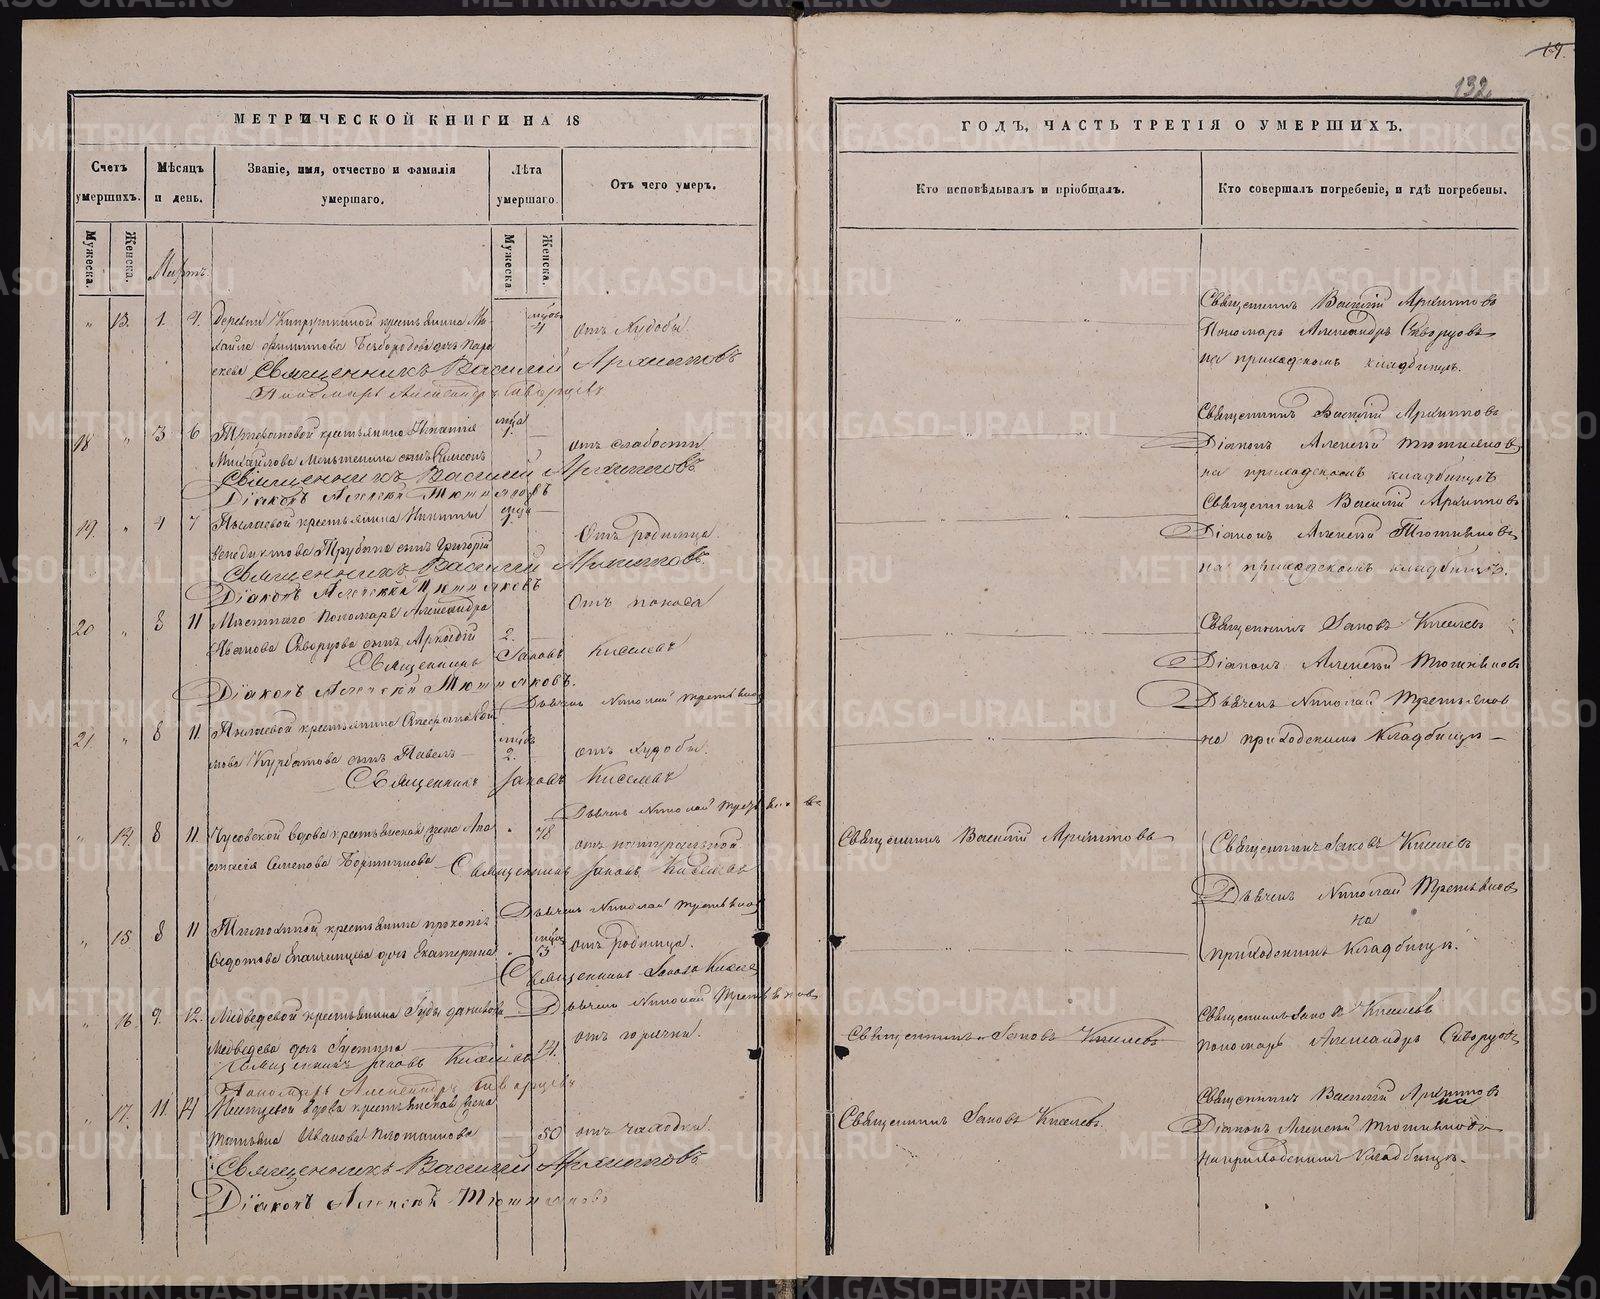 19.
132
МЕТРИЧЕСКОЙ КНИГИ НА 18
ГОДЪ, ЧАСТЬ ТРЕТІЯ О УМЕРШИХЪ.
Счетъ умершихъ.
Мѣсяцъ и день.
Званіе, имя, отчество и фамилія умершаго.
Лѣта умершаго.
Отъ чего умеръ.
Кто исповѣдывалъ и пріобщалъ.
Кто совершалъ погребеніе, и гдѣ погребены.
Мужеска.
Женска.
Мужеска.
Женска.
Мартъ
13. 1. 4. Деревни крестьянина Ми-
хаила Филиппова Безбородова дочь Пара-
скева
отъ худобы.
Священникъ Василій Архиповъ
Пономарь Александръ Скворцовъ
Священникъ Василій Архиповъ
Пономарь Александръ Скворцовъ
на приходскомъ кладбищѣ.
18 3 6 крестьянина Игнатія
Михайлова сынъ Симеонъ
отъ слабости
Священникъ Василій Архиповъ
Діаконъ Алексѣй Тюшняковъ
Священникъ Василій Архиповъ
Діаконъ Алексѣй Тюшняковъ
на приходскомъ кладбищѣ
19. 4 7 Пылаевой крестьянина Никиты
Венедиктова Трубина сынъ Григорій
Отъ родимца.
Священникъ Василій Архиповъ.
Діаконъ Алексѣй Тюшняковъ
Священникъ Василій Архиповъ
Діаконъ Алексѣй Тюшняковъ
на приходскомъ кладбищѣ.
20 8 11 Мѣстнаго Пономаря Александра
Иванова Скворцова сынъ Аркадій
2.
Отъ поноса
Священникъ Іаковъ Киселевъ
Діаконъ Алексѣй Тюшняковъ.
Дьячекъ Николай Третьяковъ
Священникъ Іаковъ Киселевъ
Діаконъ Алексѣй Тюшняковъ
Дьячекъ Николай Третьяковъ
на приходскомъ Кладбищѣ
21. 8 11. Пылаевой крестьянина
Курбатова сынъ Павелъ
2.
отъ худобы.
Священникъ Іаковъ Киселевъ
Дьячекъ Николай Третьяковъ
14. 8 11. Чусовской вдова крестьянская жена Ана-
стасія Семенова
78
отъ натуральной
Священникъ Іаковъ Киселевъ
Дьячекъ Николай Третьяковъ
Священникъ Василій Архиповъ
Священникъ Іаковъ Киселевъ
Дьячекъ Николай Третьяковъ
на
приходскомъ Кладбищѣ.
15. 8 11 крестьянина Прокопія
Федотова Епанчинцева дочь Екатерина
3
отъ родимца.
Священникъ Іаковъ Киселевъ
Дьячекъ Николай Третьяковъ
16. 9. 12. Медведевой крестьянина
Медведева дочь Іустина
14.
отъ горячки.
Священникъ Іаковъ Киселевъ
Пономарь Александръ Скворцовъ
Священникъ Іаковъ Киселевъ
Священникъ Іаковъ Киселевъ
Пономарь Александръ Скворцовъ
17. 11. 14 вдова крестьянская жена
Татьяна Иванова Плотникова
50
отъ чахотки.
Священникъ Василій Архиповъ
Діаконъ Алексѣй Тюшняковъ
Священникъ Іаковъ Киселевъ.
Священникъ Василій Архиповъ
Діаконъ Алексѣй Тюшняковъ
на приходскомъ Кладбищѣ.
METRIKI.GASO-URAL.RU